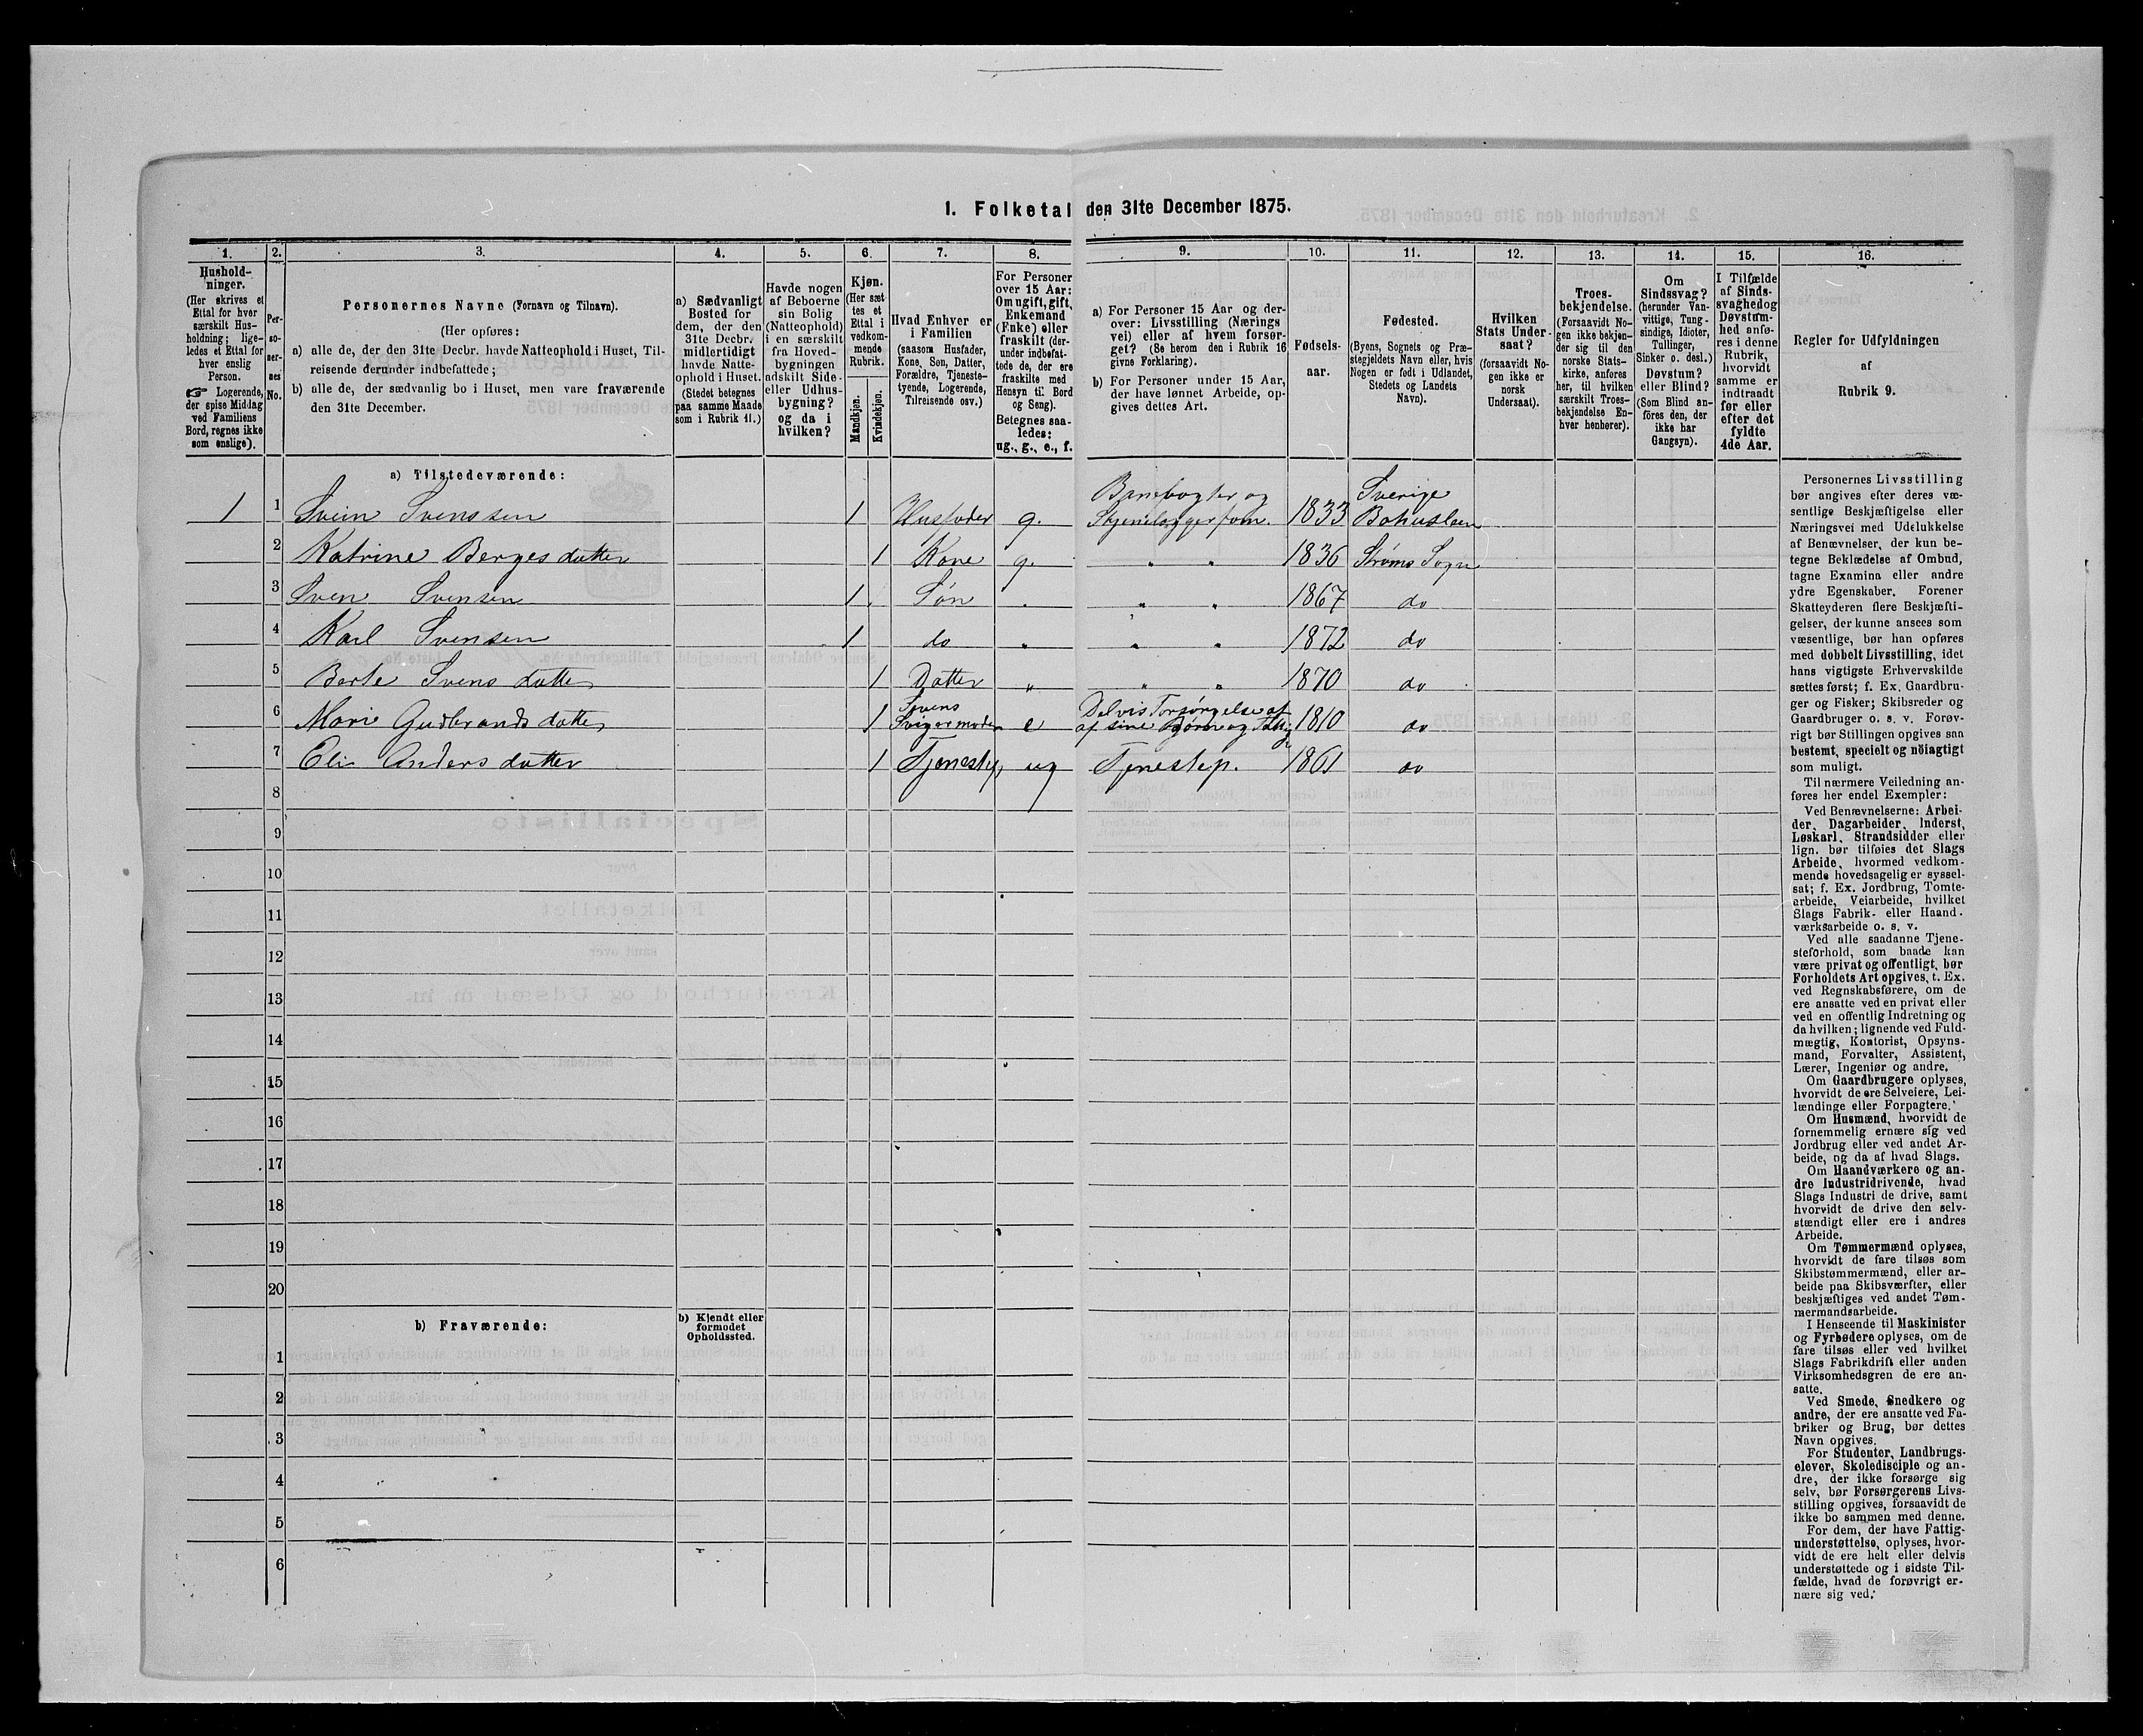 1. Folketal den 31te December 1875.
1.
Hushold-
ninger.
(Her skrives et
Ettal for hver
særskilt Hus-
holdning; lige-
ledes et Ettal for
hver enslig
Person.
☞ Logerende,
der spise Middag
ved Familiens
Bord, regnes ikke
som enslige).
2.
Per-
so-
ner-
nes
No.
3.
Personernes Navne (Fornavn og Tilnavn).
(Her opføres:
a) alle de, der den 31te Decbr. havde Natteophold i Huset, Til-
reisende derunder indbefattede;
b) alle de, der sædvanlig bo i Huset, men vare fraværende
den 31te December.
4.
a) Sædvanligt
Bosted for
dem, der den
31te Decbr.
midlertidigt
havde Natte-
ophold i Huset.
(Stedet betegnes
paa samme Maade
som i Rubrik 11.)
5.
Havde nogen
af Beboerne
sin Bolig
(Natteophold)
i en særskilt
fra Hoved-
bygningen
adskilt Side-
eller Udhus-
bygning?
og da i
hvilken?
6.
Kjøn.
(Her sæt
tes et
Ettal i
vedkom-
mende
Rubrik.
Mandkjøn.
Kvindekjøn.
7.
Hvad Enhver er
i Familien
(saasom Husfader,
Kone, Søn, Datter,
Forældre, Tjeneste-
tyende, Logerende,
Tilreisende osv.)
8.
For Personer
over 15 Aar:
Om ugift, gift,
Enkemand
(Enke) eller
fraskilt (der-
under indbefat-
tede de, der ere
fraskilte med
Hensyn til Bord
og Seng).
Betegnes saa-
ledes:
ug., g., e., f.
9.
a) For Personer 15 Aar og der-
over: Livsstilling (Nærings
vei) eller af hvem forsør-
get? (Se herom den i Rubrik 16
givne Forklaring).
b) For Personer under 15 Aar,
der have lønnet Arbeide, op-
gives dettes Art.
10.
Fødsels-
aar.
11.
Fødested.
(Byens, Sognets og Præ-
stegjeldets Navn eller, hvis
Nogen er født i Udlandet,
Stedets og Landets
Navn).
12.
Hvilken
Stats Under-
saat?
(forsaavidt No-
gen ikke er
norsk
Undersaat).
13.
Troes-
bekjendelse.
(Forsaavidt No-
gen ikke bekjen-
der sig til den
norske Stats-
kirke, anføres
her, til hvilken
særskilt Troes-
bekjendelse En-
hver henhører).
14.
Om
Sindssvag?
(herunder Van-
vittige, Tung-
sindige, Idioter,
Tullinger,
Sinker o. desl.)
Døvstum?
eller Blind?
(Som Blind an-
føres den, der
ikke har
Gangsyn).
15.
I Tilfælde
af Sinds-
svaghed og
Døvstum-
hed anfø-
res i denne
Rubrik,
hvorvidt
samme er
indtraadt
før eller
efter det
fyldte
4de Aar.
16.
Regler for Udfyldningen
af
Rubrik 9.
a) Tilstedeværende:
1 1 Svein Svenssen 1 Husfader g. Banevogter og Skjenelæggerfom. 1833 Sverige Bohuslen
2 Katrine Bergesdatter 1 Kone g. " " 1836 Strøms Sogn
3 Sven Svensen 1 Søn " " 1867 do
4 Karl Svensen 1 do " " " 1872 do
5 Berte Svensdatter 1 Datter " " " 1870 do
6 Marie Gudbrandsdatter 1 Svens Svigermoder e Delvis Forsørgelse af af sine Børn og Fattig 1810 do
7 Eli Andersdatter 1 Tjenestep. ug Tjenestep. 1861 do
8
9
10
11
12
13
14
15
16
17
18
19
20
b) Fraværende:
b) Kjendt eller
formodet
Opholdssted.
1
2
3
4
5
6
Personernes Livsstilling
bør angives efter deres væ-
sentlige Beskjæftigelse eller
Næringsvei med Udelukkelse
af Benævnelser, der kun be-
tegne Beklædelse af Ombud,
tagne Examina eller andre
ydre Egenskaber. Forener
Skatteyderen flere Beskjæfti-
gelser, der kunne ansees som
væsentlige, bør han opføres
med dobbelt Livsstilling, idet
hans vigtigste Erhvervskilde
sættes først; f. Ex. Gaardbru-
ger og Fisker; Skibsreder og
Gaardbruger o. s. v. Forøv-
rigt bør Stillingen opgives saa
bestemt, specielt og nöiagtigt
som muligt.
Til nærmere Veiledning an-
føres her endel Exempler:
Ved Benævnelserne: Arbei-
der, Dagarbeider, Inderst,
Løskarl, Strandsidder eller
lign. bør tilføies det Slags
Arbeide, hvormed vedkom-
mende hovedsagelig er syssel-
sat; f. Ex. Jordbrug, Tomte-
arbeide, Veiarbeide, hvilket
Slags Fabrik- eller Haand-
værksarbeide o. s. v.
Ved alle saadanne Tjene-
steforhold, som baade kan
være privat og offentligt, bør
Forholdets Art opgives, t. Ex.
ved Regnskabsførere, om de
ere ansatte ved en privat eller
ved en offentlig Indretning og
da hvilken; lignende ved Fuld-
mægtig, Kontorist, Opsyns-
mand, Forvalter, Assistent,
Lærer, Ingeniør og andre.
Om Gaardbrugere oplyses,
hvorvidt de ere Selveiere, Lei-
lændinge eller Forpagtere.
Om Husmænd, hvorvidt de
fornemmelig ernære sig ved
Jordbrug eller ved andet Ar-
beide, og da af hvad Slags.
Om Haandværkere og an-
dre Industridrivende, hvad
Slags Industri de drive, samt
hvorvidt de drive den selv-
stændigt eller ere i andres
Arbeide.
Om Tømmermænd oplyses,
hvorvidt de fare tilsøs som
Skibstømmermænd, eller ar-
beide paa Skibsværfter, eller
beskjæftiges ved andet Tøm-
mermandsarbeide.
I Henseende til Maskinister
og Fyrbødere oplyses, om de
fare tilsøs eller ved hvilket
Slags Fabrikdrift eller anden
Virksomhedsgren de ere an-
satte.
Ved Smede, Snedkere og
andre, der ere ansatte ved Fa-
briker og Brug, bør dettes
Navn opgives.
For Studenter, Landbrugs-
elever, Skoledisciple og an-
dre, der ikke forsørge sig
selv, bør Forsørgerens Livs-
stilling opgives, forsaavidt de
ikke bo sammen med denne.
For dem, der have Fattig-
understøttelse, oplyses, hvor-
vidt de ere helt eller delvis
understøttede og i sidste Til-
fælde, hvad de forøvrigt er-
nære sig ved.